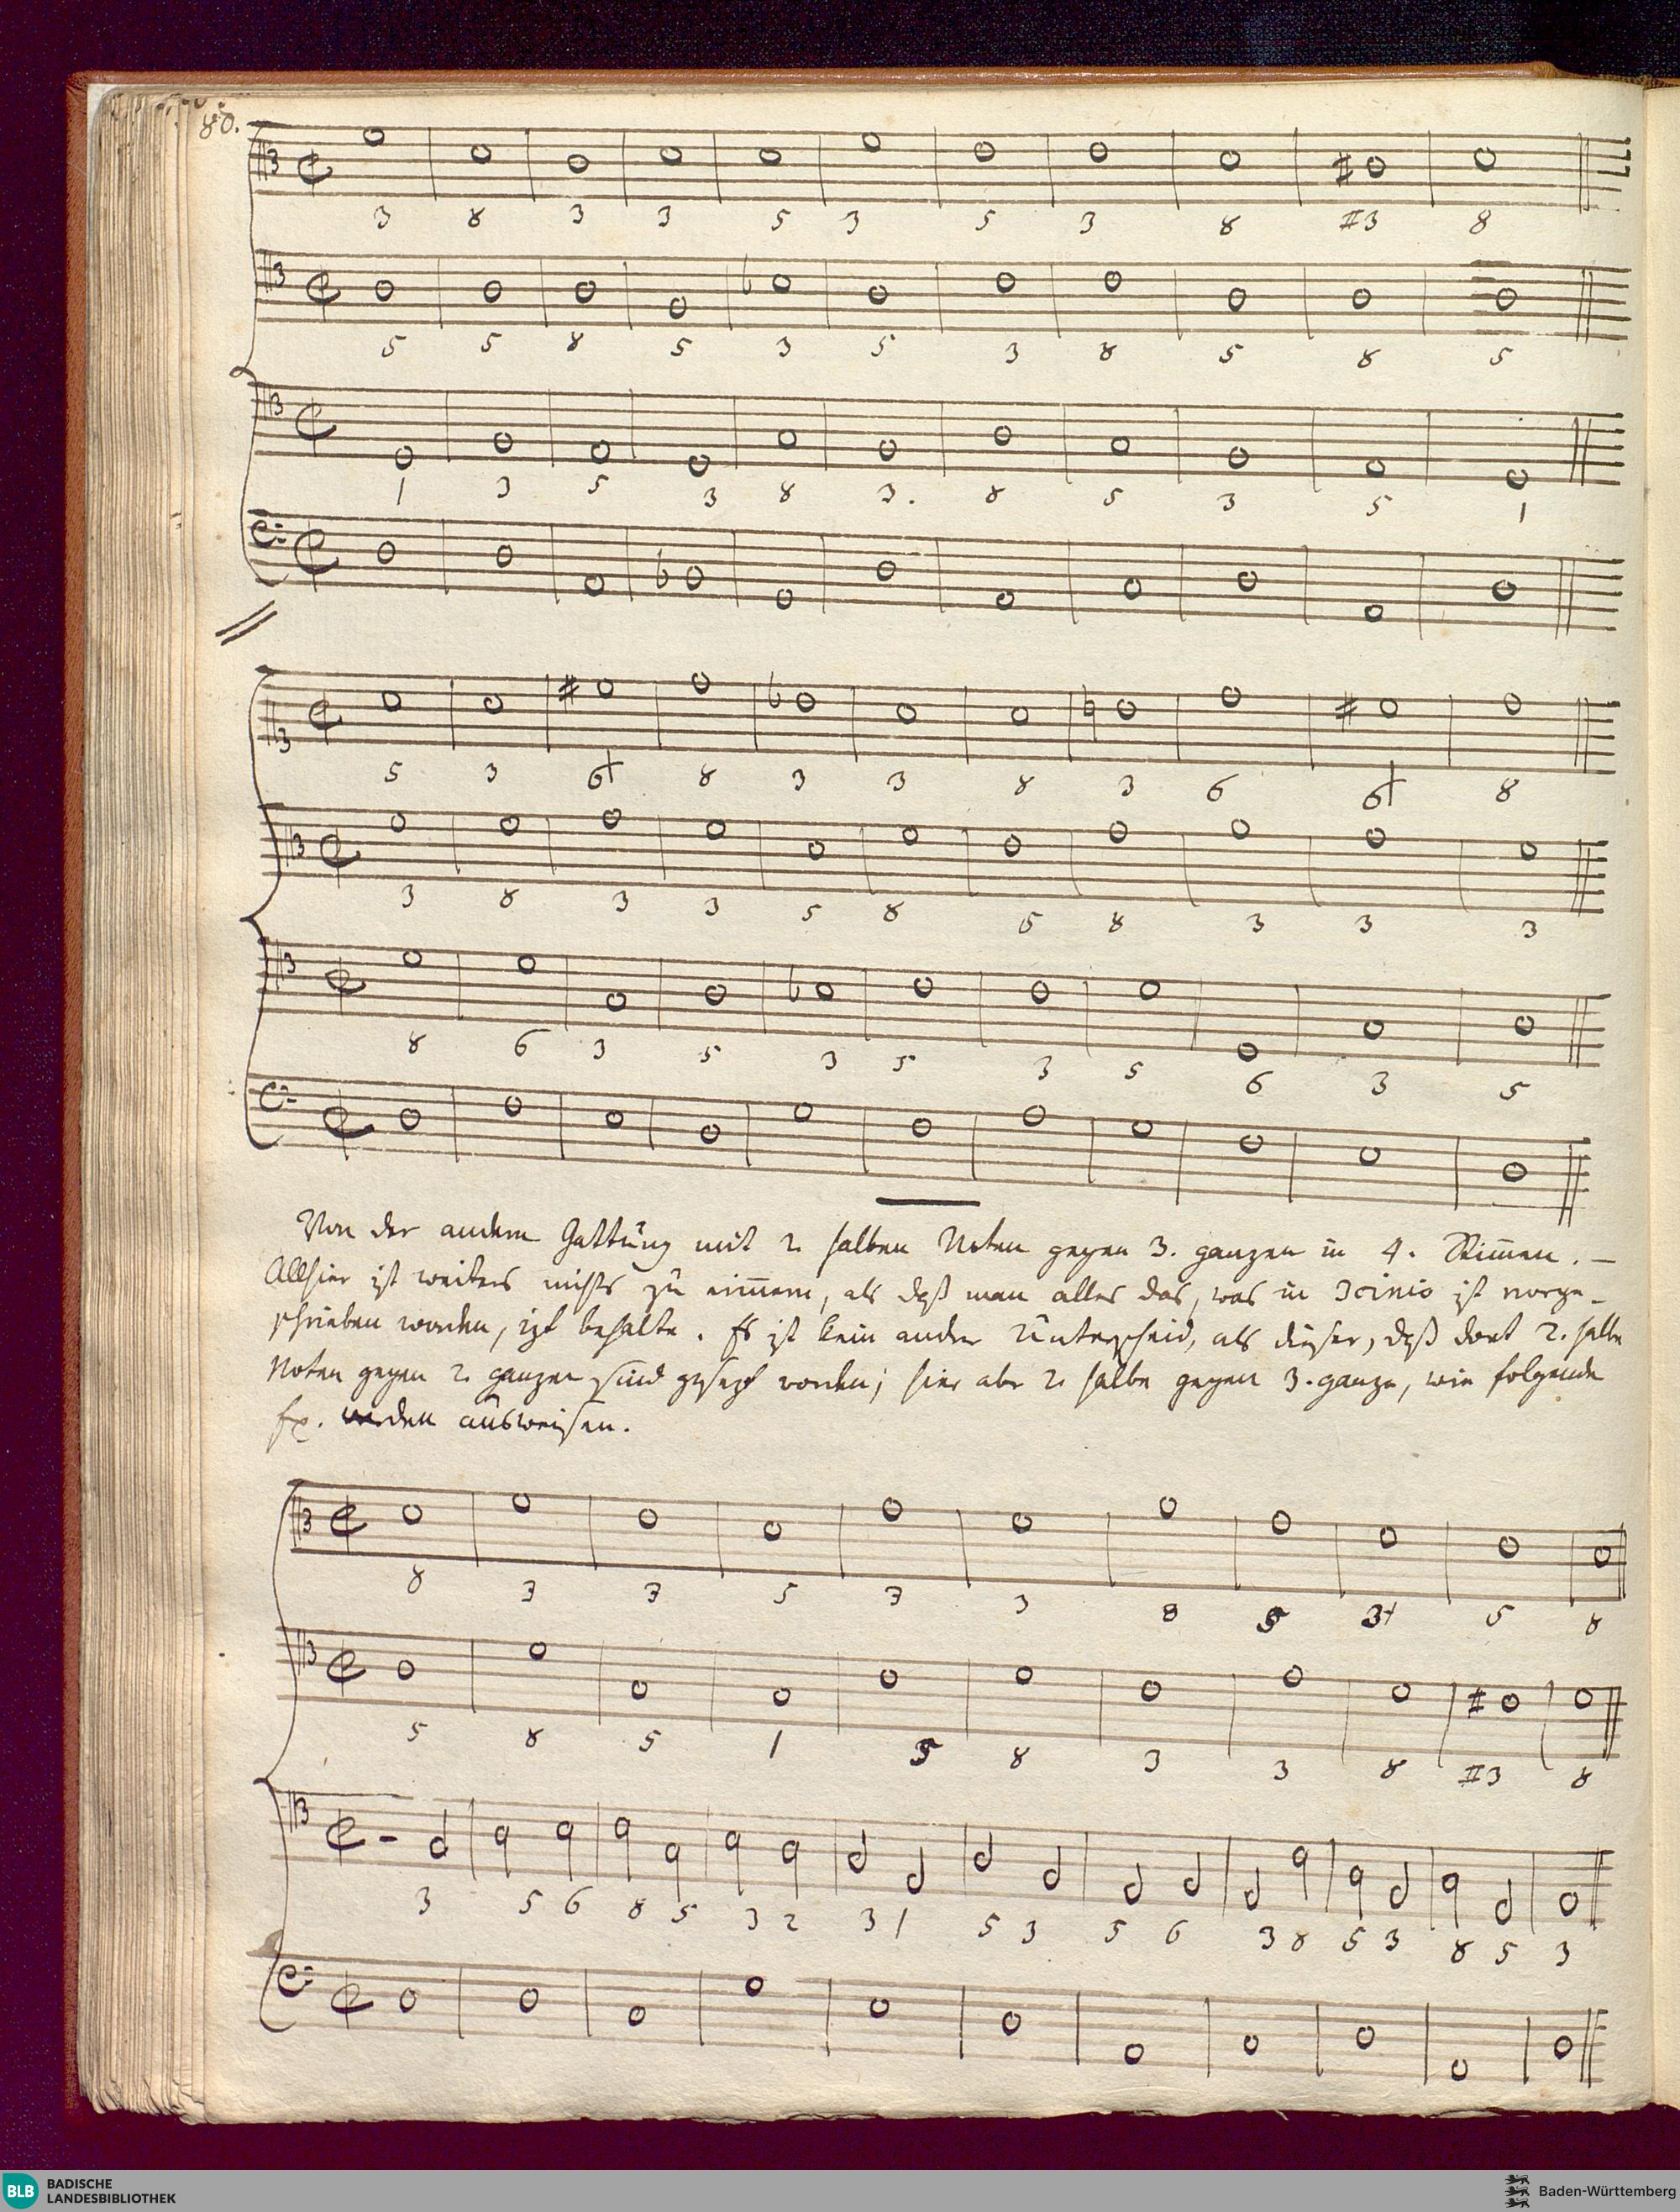 80.
3 8 3 3 5 3 5 3 8 #3 8
5 5 8 5 3 5 3 8 5 8 5
1 3 5 3 8 3. 8 5 3 5 1
5 3 6+ 8 3 3 8 3 6 6+ 8
3 8 3 3 5 8 5 8 3 3 3
8 6 3 5 3 5 3 5 6 3 5
Von der andern Gattung mit 2 halben Noten gegen 3. ganzen in 4. Stim̄en. —
Allhier ist weiters nichts zu eriñern, als daß man alles das, was in 3cinio ist vorge-
schrieben worden, izt behalte. Es ist kein andrer Unterscheid, als dieser, daß dort 2. halbe
Noten gegen 2 ganzen sind gesezt worden; hier aber 2 halbe gegen 3. ganze, wie folgende
Ex. werden ausweisen.
8 3 3 5 3 3 8 5 3+ 5 8
5 8 5 1 5 8 3 3 8 #3 8
3 5 6 8 5 3 2 3 1 5 3 5 6 3 8 5 3 8 5 3
BLB BADISCHE
LANDESBIBLIOTHEK
Baden-Württemberg